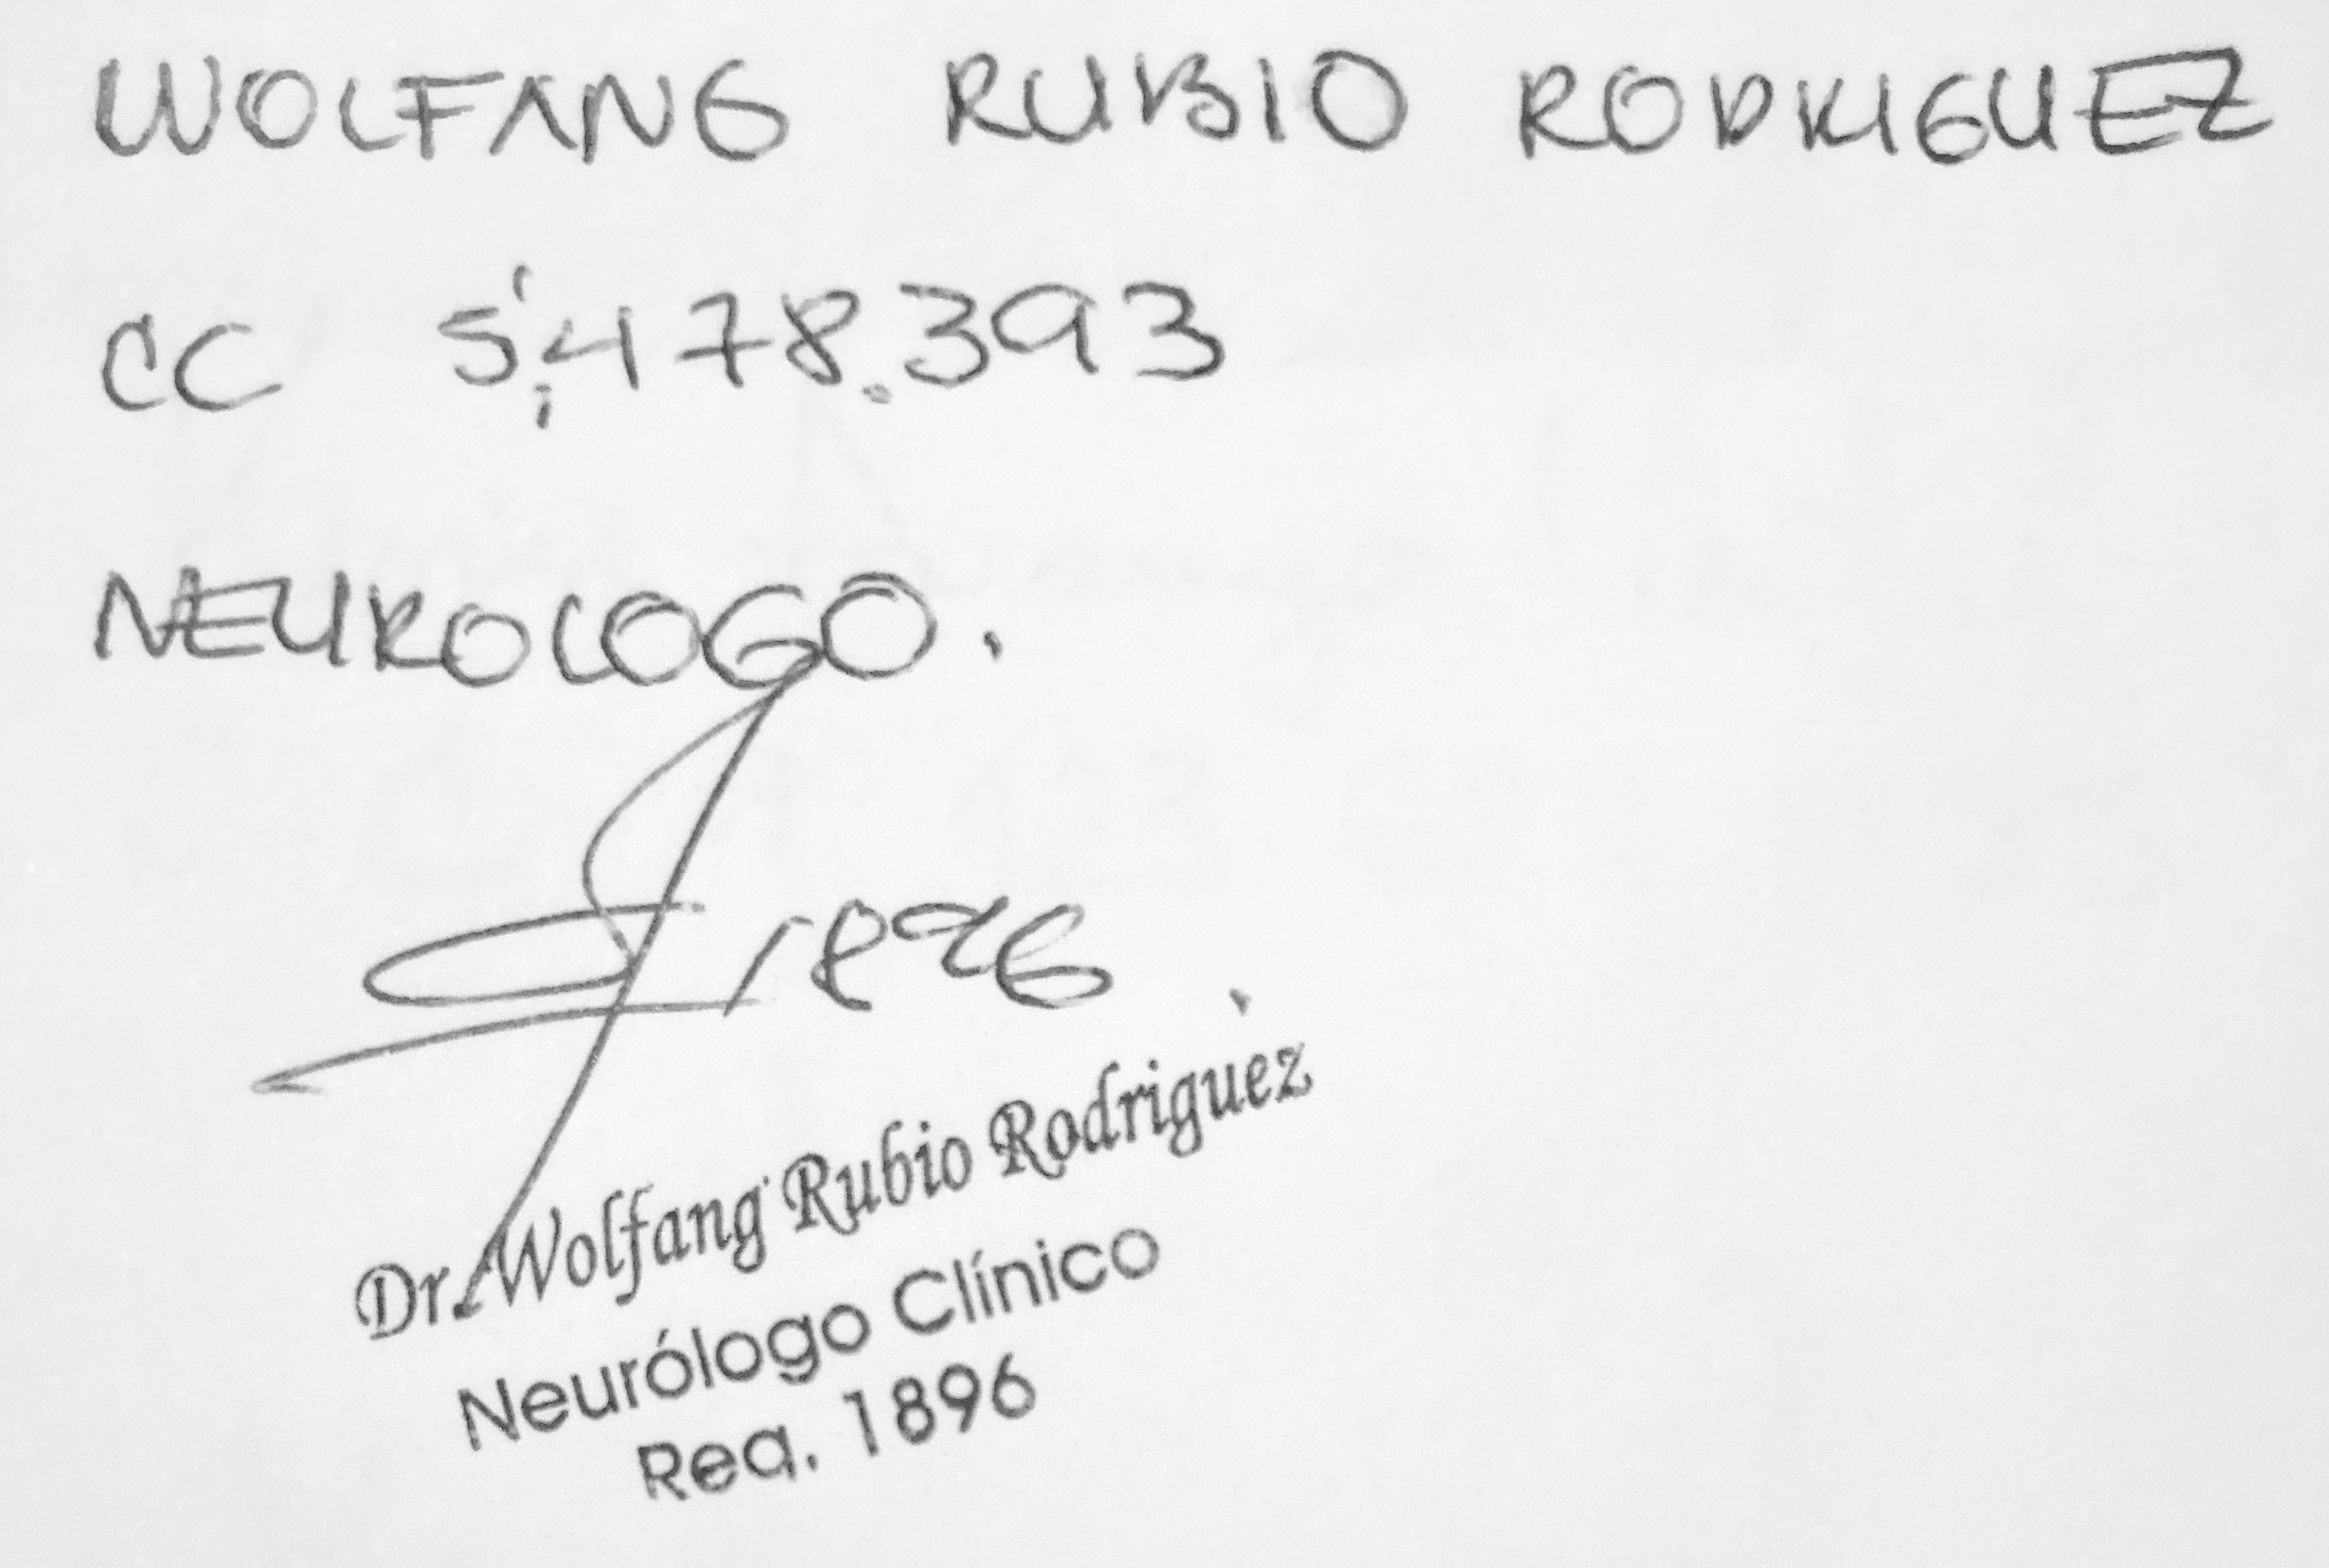 WOLFANG RUBIO RODRIGUEZ
CC 5'478.393
NEUROLOGO.
1896
Dr. Wolfang Rubio Rodriguez
Neurólogo Clínico
Reg. 1896